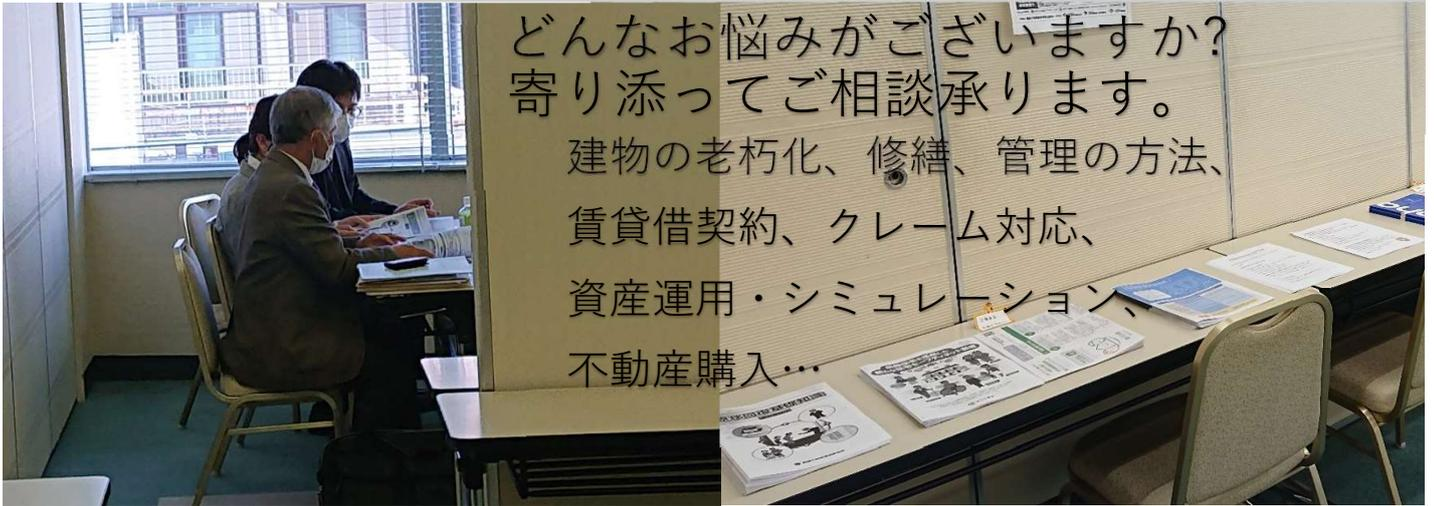 どんなお悩みがございますか?
寄り添ってご相談承ります。
建物の老朽化、修繕、管理の方法、
賃貸借契約、クレーム対応、
資産運用・シミュレーション、
不動産購入…